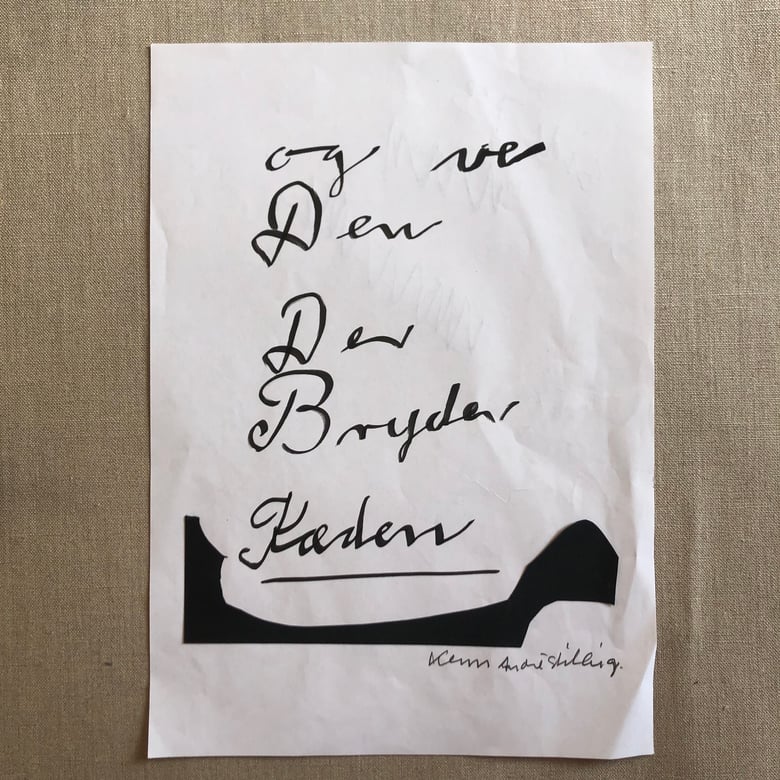 og ve
Den
Der
Bryder
Kæden
Kenn André Stilling.